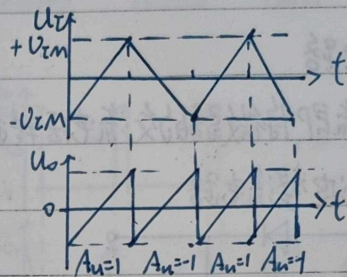 u_I
+U_IM
t
-U_IM
u_o
0
t
A_u=1 A_u=-1 A_u=1 A_u=-1